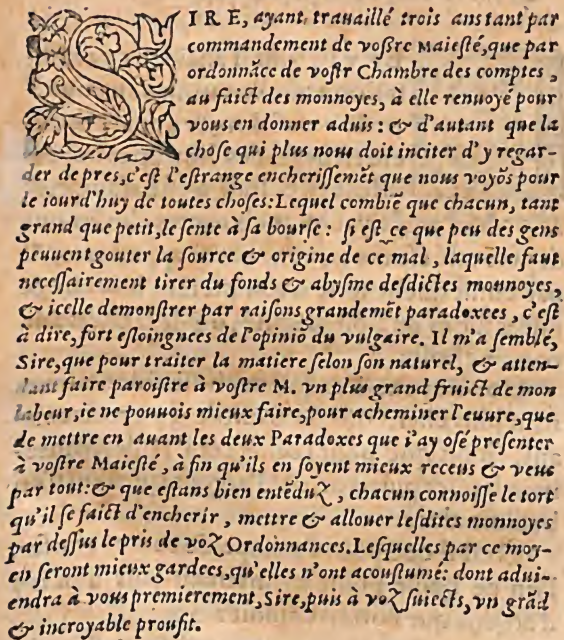 SIRE, ayant, trauaillé trois ans tant par
commandement de voſtre Maieſté, que par
ordonnãce de voſtr Chambre des comptes,
au faict des monnoyes, à elle renuoyé pour
vous en donner aduis : & d'autant que la
choſe qui plus nous doit inciter d'y regar-
der de pres, c'eſt l'eſtrange encheriſſemẽt que nous voyõs pour
le iourd'huy de toutes choſes: Lequel combiẽ que chacun, tant
grand que petit, le ſente à ſa bourſe : ſi eſt ce que peu des gens
peuuent gouter la ſource & origine de ce mal, laquelle faut
neceſſairement tirer du fonds & abyſme deſdictes monnoyes,
& icelle demonſtrer par raiſons grandemẽt paradoxees, c'eſt
à dire, fort eſloingnees de l'opiniõ du vulgaire. Il m'a ſemblé,
Sire, que pour traiter la matiere ſelon ſon naturel, & atten-
dant faire paroiſtre à voſtre M. vn plus grand fruict de mon
labeur, ie ne pouuois mieux faire, pour acheminer l'euure, que
de mettre en auant les deux Paradoxes que i'ay oſé preſenter
à voſtre Maieſté, à fin qu'ils en ſoyent mieux receus & veus
par tout: & que eſtans bien entẽduz, chacun connoiſſe le tort
qu'il ſe faict d'encherir, mettre & allouer leſdites monnoyes
par deſſus le pris de voz Ordonnances. Leſquelles par ce moy-
en ſeront mieux gardees, qu'elles n'ont acouſtumé: dont adui-
endra à vous premierement, Sire, puis à voz ſuiects, vn grãd
& incroyable proufit.